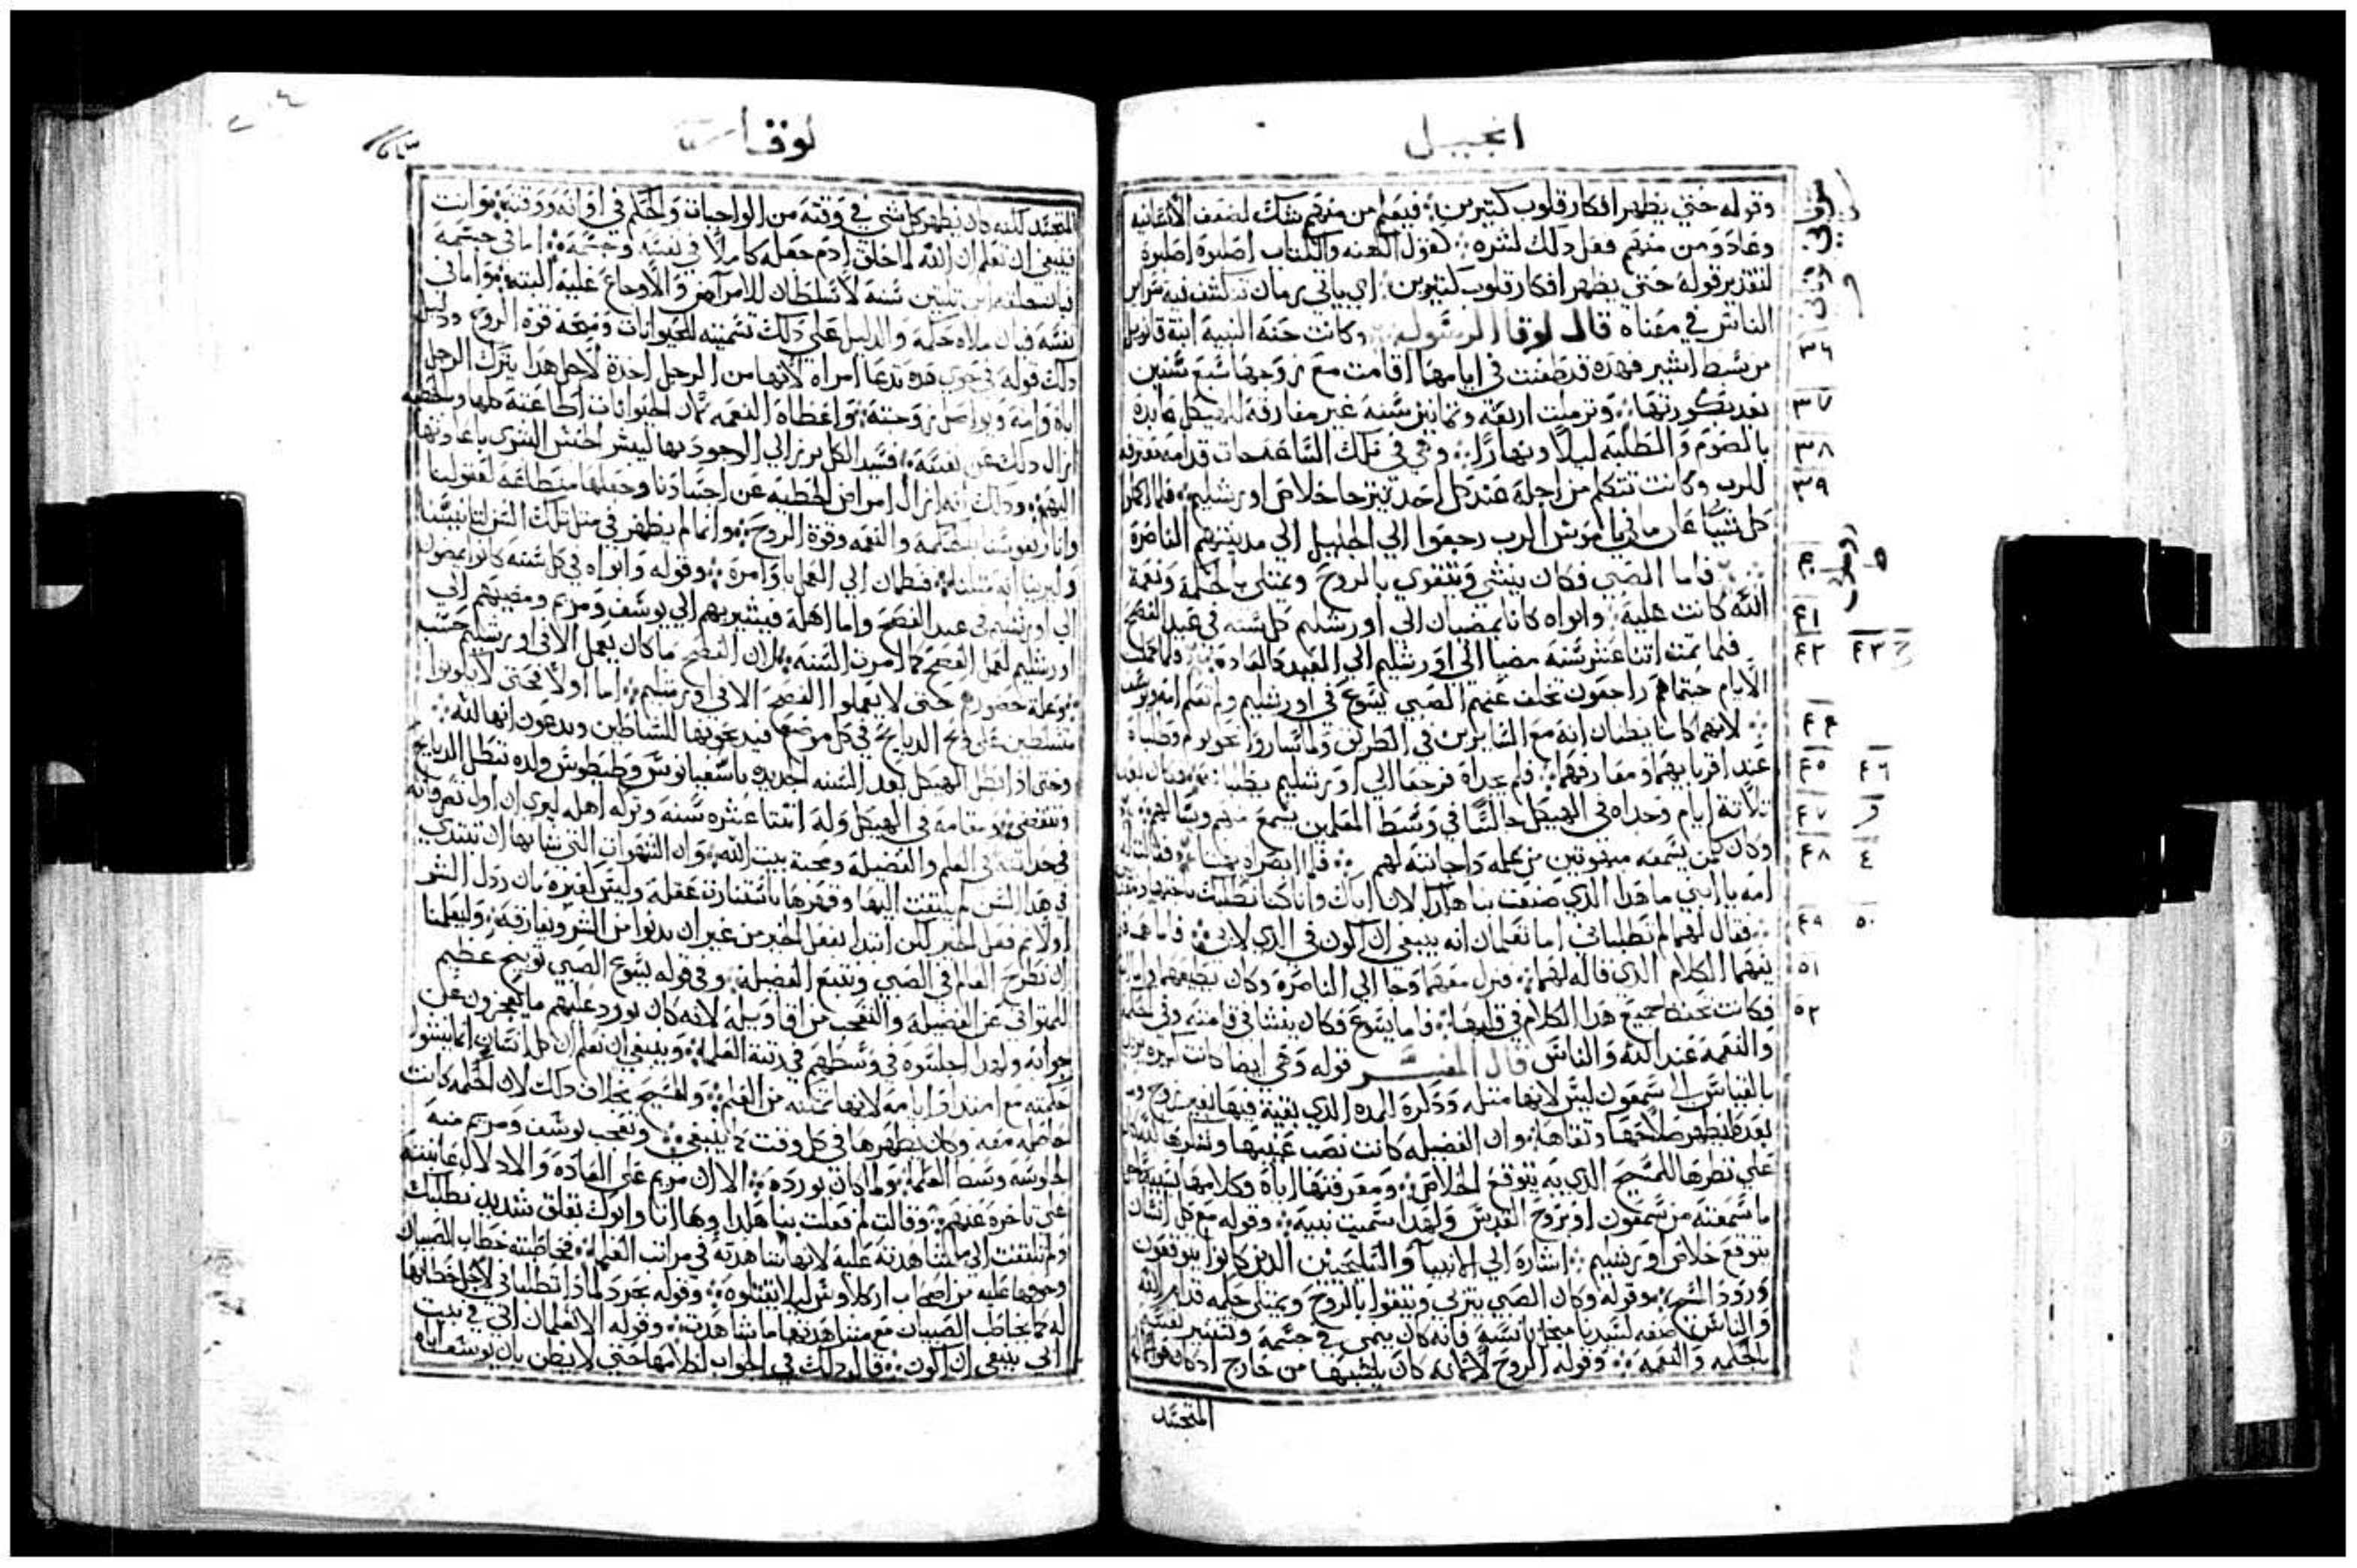 انجيل
وقوله حتي يظهر افكار قلوب كثيرين فيعلم من منهم شك لضعف الانسانيه
وعاد ومن منهم فعل ذلك لشره كقول الكهنه والكتاب اصلبوه اصلبوه
لتقدير قوله حتي يظهر افكار قلوب كثيرين اي ياتي زمان تنكشف فيه سراير
الناس في معناه قال لوقا الرسول وكانت حنه النبيه ابنة فانويل
٣٦
من سبط اشير فهذه قد طعنت في ايامها اقامت مع زوجها سبع سنين
٣٧
بعد بكوريتها وترملت اربعة وثمانين سنه غير مفارقه للهيكل عابده
٣٨
بالصوم والطلبه ليلا ونهارا وهي في تلك الساعه جات قدامه معترفه
٣٩
للرب وكانت تتكلم من اجله عند كل احد يترجا خلاص اورشليم فلما اكملوا
كل شيا علي ما في ناموس الرب رجعوا الي الجليل الي مدينتهم الناصره
٤٠
فاما الصبي فكان ينشي ويتقوي بالروح ويمتلي بالحكمه ونعمة
٤١
الله كانت عليه وابواه كانا يمضيان الي اورشليم كل سنه في عيد الفصح
٤٢ ٤٣
فلما تمت اثنا عشر سنه مضيا الي اورشليم الي العيد كالعاده ولما كملت
الايام فبينماهم راجعون تخلف عنهم الصبي يسوع في اورشليم ولم تعلم امه ويوسف
٤٤
لانهما كانا يظنان انه مع السايرين في الطريق ولما ساروا نحو يوم وطلباه
٤٥ ٤٦
عند اقربايهما ومعارفهما فلم يجداه فرجعا الي اورشليم يطلبانه وكان بعد
٤٧
ثلاثة ايام وجداه في الهيكل جالسا في وسط المعلمين يسمع منهم ويسالهم
٤٨
وكان كل من يسمعه مبهوتين من علمه واجابته لهم فلما ابصراه بهتا فقالت له
امه يا ابني ما هذا الذي صنعت بنا هكذا لان اباك وانا كنا نطلبك
٤٩ ٥٠
فقال لهما لم تطلباني اما تعلمان انه ينبغي ان اكون في الذي لابي فاما هما فلم
٥١
يفهما الكلام الذي قاله لهما فنزل معهما وجا الي الناصره وكان يطيعهما
٥٢
فكانت تحفظ جميع هذا الكلام في قلبها فاما يسوع فكان ينشا في قامته وفي الحكمه
والنعمه عند الله والناس قال المفسر قوله وهي ايضا كانت
بالقياس الي سمعون ليس لانها مثله وذكره المده الذي بقية فيها بغير زوج
بعده ليظهر صلاحها وتقاها وان الفضيله كانت نصب عينيها
علي نظرها للمسيح الذي به يتوقع الخلاص ومعرفتها اياه وكلامها
ما سمعته من سمعون او بروح القدس ولهذا سميت نبيه وقوله مع كل انسان
يتوقع خلاص اورشليم اشاره الي الانبيا والصالحين الذين كانوا يتوقعون
ورود المسيح وقوله وكان الصبي يتربي ويتقوا بالروح ويمتلي حكمه قدام الله
والناس صفه لسيدنا فانه كان ينمي في جسمه
بالحكمه والنعمه وقوله الروح لانه كان يكتسبها من خارج اذ كان
المتجسد
لوقا
المتجسد لكنه كان يظهر كل شي في وقته من الواجبات والحكم في اوانه ووقته وانت
فينبغي ان تعلم ان الله لما خلق ادم جعله كاملا في نفسه وجسمه اما في جسمه
فبانه خلقه ابن ثلثين سنه لا تسلطان للامراض والاوجاع عليه البته واما في
نفسه فبان ملاه حكمه والدليل علي ذلك تسميته للحيوانات ومنحه قوة الروح ودليل
ذلك قوله في حوي هذه تدعا امراه لانها من الرجل اخذت لاجل هذا يترك الرجل
اباه وامه ويواصل زوجته واعطاه النعمه
ازال ذلك عن نفسه فسيد الكل برز الي الوجود بها ليبشر الجنس البشري باعادتها
اليهم وذلك انه ازال امراض الخطيه عن اجسادنا وجعلها لعقولنا
وانار نفوسنا بالحكمه والنعمه وقوة الروح وانما لم يظهر في مثل تلك السن
وليرينا انه مثلنا الي العمل باوامره وقوله وابواه في كل سنه كانوا يمضون
الي اورشليم في عيد الفصح واما اهله فيشير بهم الي يوسف ومريم ومضيهم الي
اورشليم لعمل الفصح كما امرت السنه لان الفصح ما كان يعمل الا في اورشليم حسب
وعلة حضورهم حتي لا يعملوا الفصح الا في اورشليم اما اولا فحتي لا يكونوا
متسلطين علي ذبح الدبايح في كل موضع فيدبحونها للشياطين ويدعون انها لله
وحتي اذا ابطل الهيكل بعد السنه الجديده باسفسيانوس وطيطوس ولده تبطل الدبايح
وتنقضي ومقامه في الهيكل وله اثنتا عشره سنه وتركه اهله ليري ان اول تصرفاته
في حداثته في العلم والفضيله ومحبة بيت الله وان الشهوات التي شانها ان تبتدي
في هذا السن لم يلتفت اليها وقهرها باستنارة عقله وليس لغيره بان رذل الشر
اولا ثم فعل الخير لكن ابتدا بفعل الخير من غير ان يدنوا من الشر ويفارقه وليعلمنا
ان نطرح العالم في الصبي ونتبع الفضيله وفي قوله يسوع الصبي توبيخ عظيم
للمتواني عن الفضيله والتعجب من اقاويله لانه كان يورد عليهم ما يعجزون عن
جوابه ولهذا اجلسوه في وسطهم في رتبة العلما وينبغي ان تعلم ان كل انسان انما ينشوا
حكمته مع امتداد ايامه لانها مكتسبه من العلم والمسيح بخلاف ذلك لان الحكمه كانت
حاصله معه وكان يظهرها في كل وقت كما ينبغي وتعجب يوسف ومريم منه
لجلوسه وسط العلما ولما كان يورده الا ان مريم علي العاده والادلال عاتبته
علي تاخره عنهم وقالت لم فعلت بنا هكذا وها انا وابوك بقلق شديد نطلبك
ولم تلتفت الي ما شاهدته عليه لانها شاهدته في مراتب العلما فخاطبته خطاب الصبيان
وخوفها عليه من اصحاب اركلاوس ليلا يقتلوه وقوله بحرد لماذا تطلباني لاجل خطابها
له كما يخاطب الصبيان مع مشاهدتها ما شاهدت وقوله الا تعلمان انني في بيت
ابي ينبغي ان اكون قال ذلك في الجواب لكلامها حتي لا يظن بان يوسف اباه